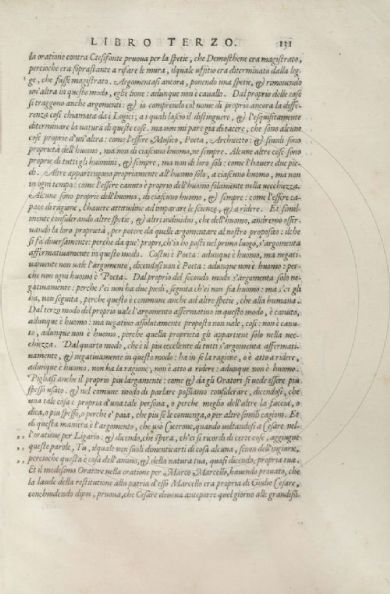 LIBRO TERZO. 131
la oratione contra Ctesifonte pruoua per la spetie, che Demosthene era magistrato,
percioche era soprastante a rifare le mura, il quale uffitio era diterminato dalla leg-
ge, che fusse magistrato. Argomentasi ancora, ponendo una spetie, & rimouendo
un'altra in questo modo, egli è huomo: adunque non è cauallo. Dal proprio delle cose
si traggono anche argomenti: & io comprendo col nome di proprio ancora la diffe-
renza cosi chiamata da i Logici; a i quali lascio il distinguere, & l'esquisitamente
diterminare la natura di queste cose. ma non mi par già di tacere, che sono alcune
cose proprie d'un'altra: come l'essere Musico, Poeta, Architetto: & simili sono
propriutà dell'huomo, ma non di ciascuno huomo, ne sempre. Alcune altre cose sono
proprie di tutti gli huomini, & sempre, ma non di loro soli: come l'hauere due pie-
di. Altre appartengono propriamente all'huomo solo, a ciascuno huomo, ma non
in ogni tempo: come l'essere canuto è proprio dell'huomo solamente nella vecchiezza.
Alcune sono proprie dell'huomo, di ciascuno huomo, & sempre: come l'essere ca-
pace di ragione, l'hauere attitudine ad imparare le scienze, & a ridere. Et simil-
mente considerando altre spetie, & altri indiuidui, che dell'huomo, andremo osser-
uando la loro propriutà, per potere da quelle argomentare al nostro proposito: ilche
si fa diuersamente: perche da que' proprij, ch'io ho posti nel primo luogo, s'argomenta
affermatiuamente in questo modo. Costui è Poeta: adunque è huomo, ma negati-
uamente non uale l'argomento, dicendo: non è Poeta: adunque non è huomo: per-
che non ogni huomo è Poeta. Dal proprio del secondo modo s'argomenta solo ne-
gatiuamente: perche s'ei non ha due piedi, seguita ch'ei non sia huomo: ma s'ei gli
ha, non seguita, perche questo è commune anche ad altre spetie, che alla humana.
Dal terzo modo del proprio uale l'argomento affermatiuo in questo modo, è canuto,
adunque è huomo: ma negatiuo assolutamente proposto non uale, cosi: non è canu-
to, adunque non è huomo, perche quella proprietà gli appartiene solo nella uec-
chiezza. Dal quarto modo, che è il piu eccellente di tutti s'argomenta affermati-
uamente, & negatiuamente in questo modo: ha in se la ragione, o è atto a ridere,
adunque è huomo, non ha la ragione, non è atto a ridere: adunque non è huomo.
Pigliasi anche il proprio piu largamente: come & da gli Oratori si uede essere piu
spesso usato. & nel comune modo di parlare possiamo considerare, dicendosi, che
una tale cosa è propria d'una tale persona, o perche meglio dell'altre la faccia, o
dica, o piu spesso, o perche è paia, che piu se le conuenga, o per altre simili cagioni. Et
di questa maniera è l'argomento, che usò Cicerone, quando uoltandosi a Cesare nel-
l'oratione per Ligario, & dicendo, che spera, ch'ei si ricordi di certe cose, aggiugne
queste parole, Tu, il quale non suoli dimenticarti di cosa alcuna, senon dell'ingiurie,
percioche questa è cosa dell'animo, & della natura tua, quasi dicendo, propria tua.
Et il medesimo Oratore nella oratione per Marco Marcello, hauendo prouato, che
la laude della restitutione alla patria d'esso Marcello era propria di Giulio Cesare,
conchiudendo dipoi, pruoua, che Cesare doueua anteporre quel giorno alle grandissi-